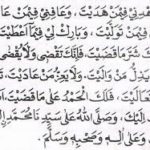 اهْدِنِي فِيْمَنْ هَدَيْتَ ، وَعَافِنِي فِيْمَنْ
فِيْمَنْ تَوَلَّيْتَ ، وَبَارِكْ لِي فِيْمَا أَعْطَيْتَ
شَرَّ مَا قَضَيْتَ ، فَإِنَّكَ تَقْضِي وَلَا يُقْضَى
يَذِلُّ مَنْ وَالَيْتَ ، وَلَا يَعِزُّ مَنْ عَادَيْتَ
تَعَالَيْتَ ، فَلَكَ الْحَمْدُ عَلَى مَا قَضَيْتَ
إِلَيْكَ ، وَصَلَّى اللهُ عَلَى سَيِّدِنَا مُحَمَّدٍ
وَعَلَى آلِهِ وَصَحْبِهِ وَسَلَّمَ .